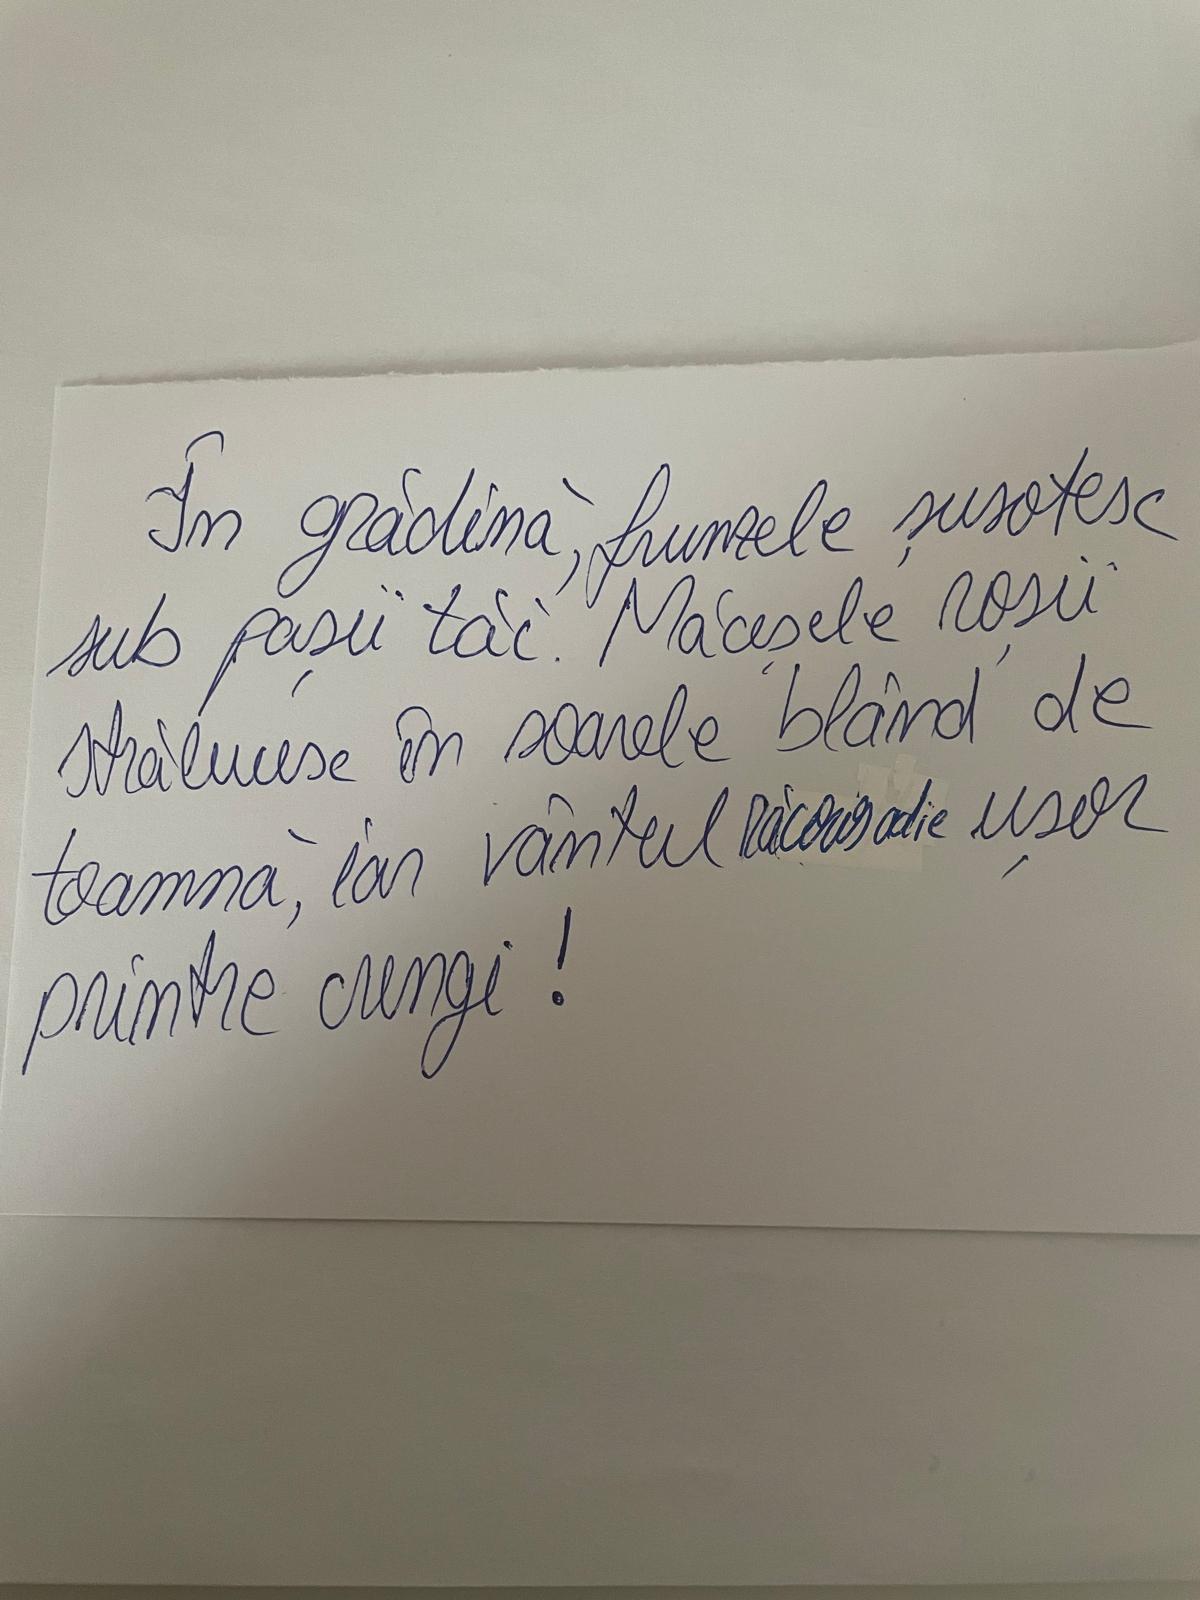 În grădină, frunzele șușotesc
sub pașii tăi. Măceșele roșii
strălucesc în soarele blând de
toamnă, iar vântul răcoros adie ușor
printre crengi!